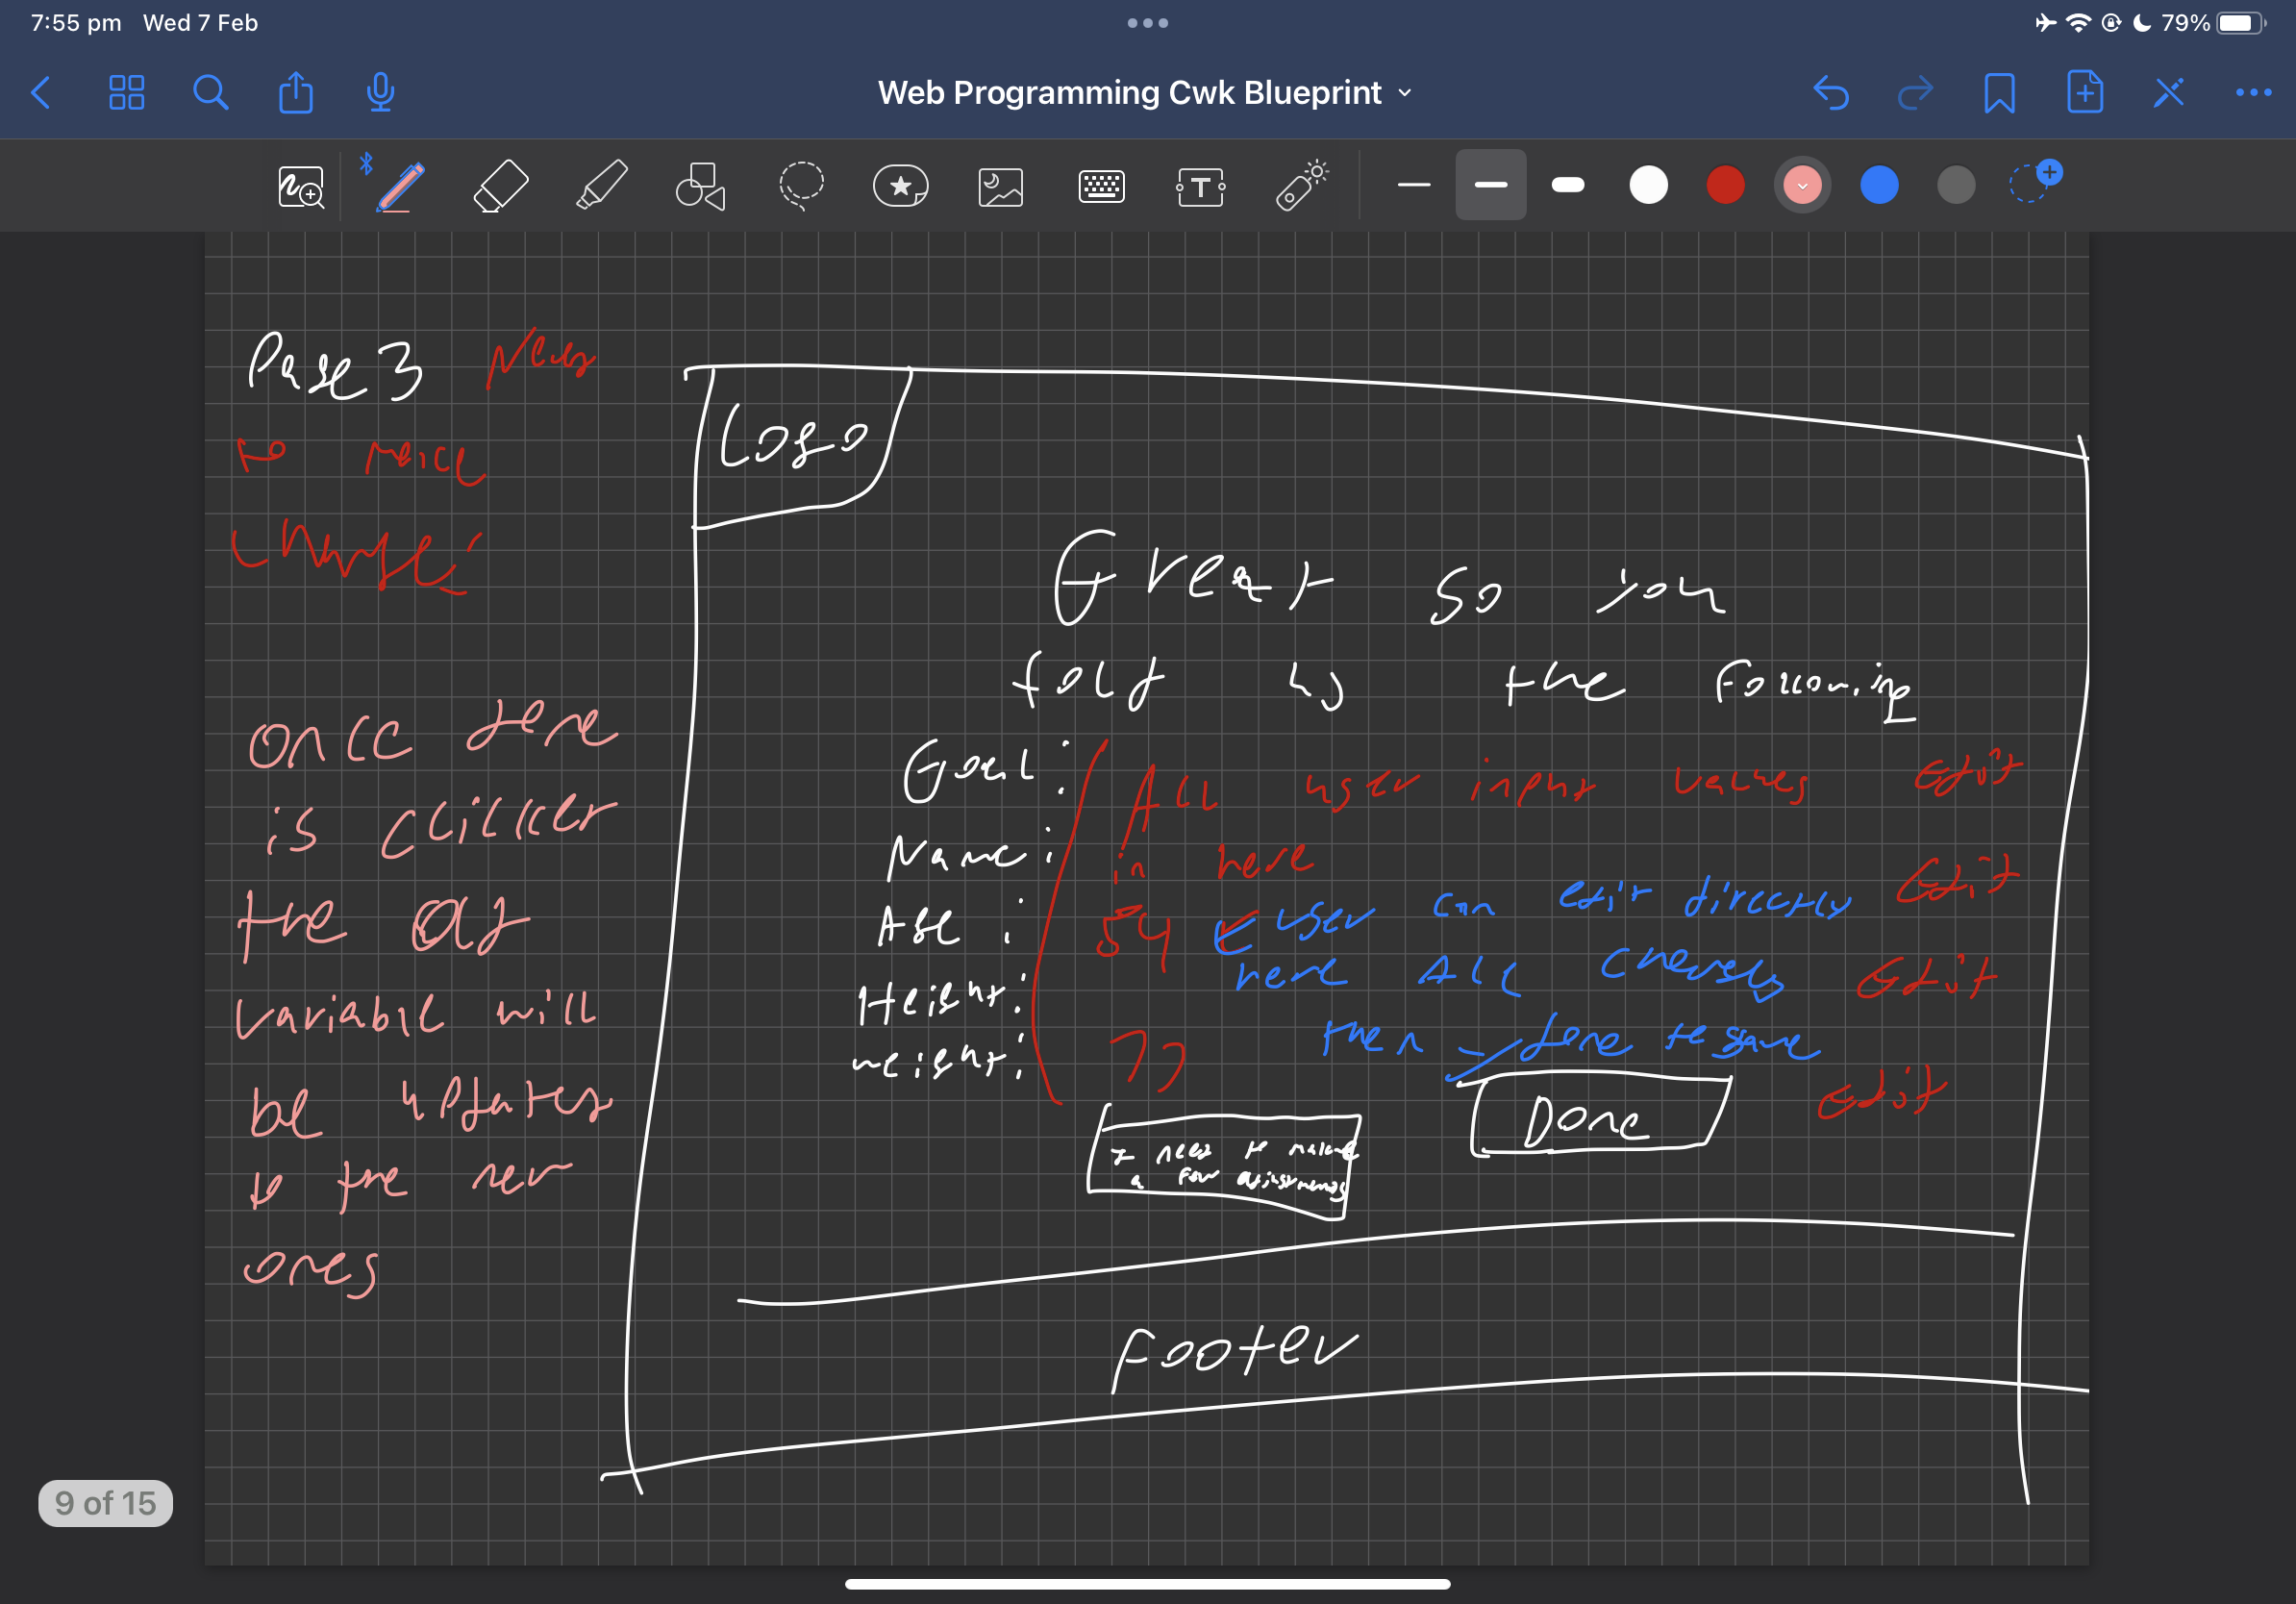 7:55 pm Wed 7 Feb
79%
Web Programming Cwk Blueprint
T
Page 3 New
to nice
change:
once done
is clicked
the old
variable will
be updated
to the new
ones
Logo
Great so you
told us the following
Goal: All user input values Edit
Name: in here Edit
Age: 54 user can edit directly
Height: here All changes Edit
then done to save
weight: 77 Edit
I need to make
a few adjustments
Done
Footer
9 of 15